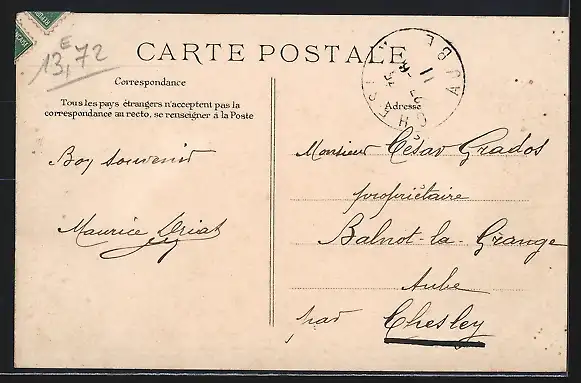 13,72
E
CARTE POSTALE
Correspondance
Tous les pays étrangers n'acceptent pas la
correspondance au recto, se renseigner à la Poste
Bon souvenir
Maurice
Adresse
CHESLEY
AUBE
Monsieur César Grados
propriétaire
Balnot-la-Grange
Aube
par Chesley